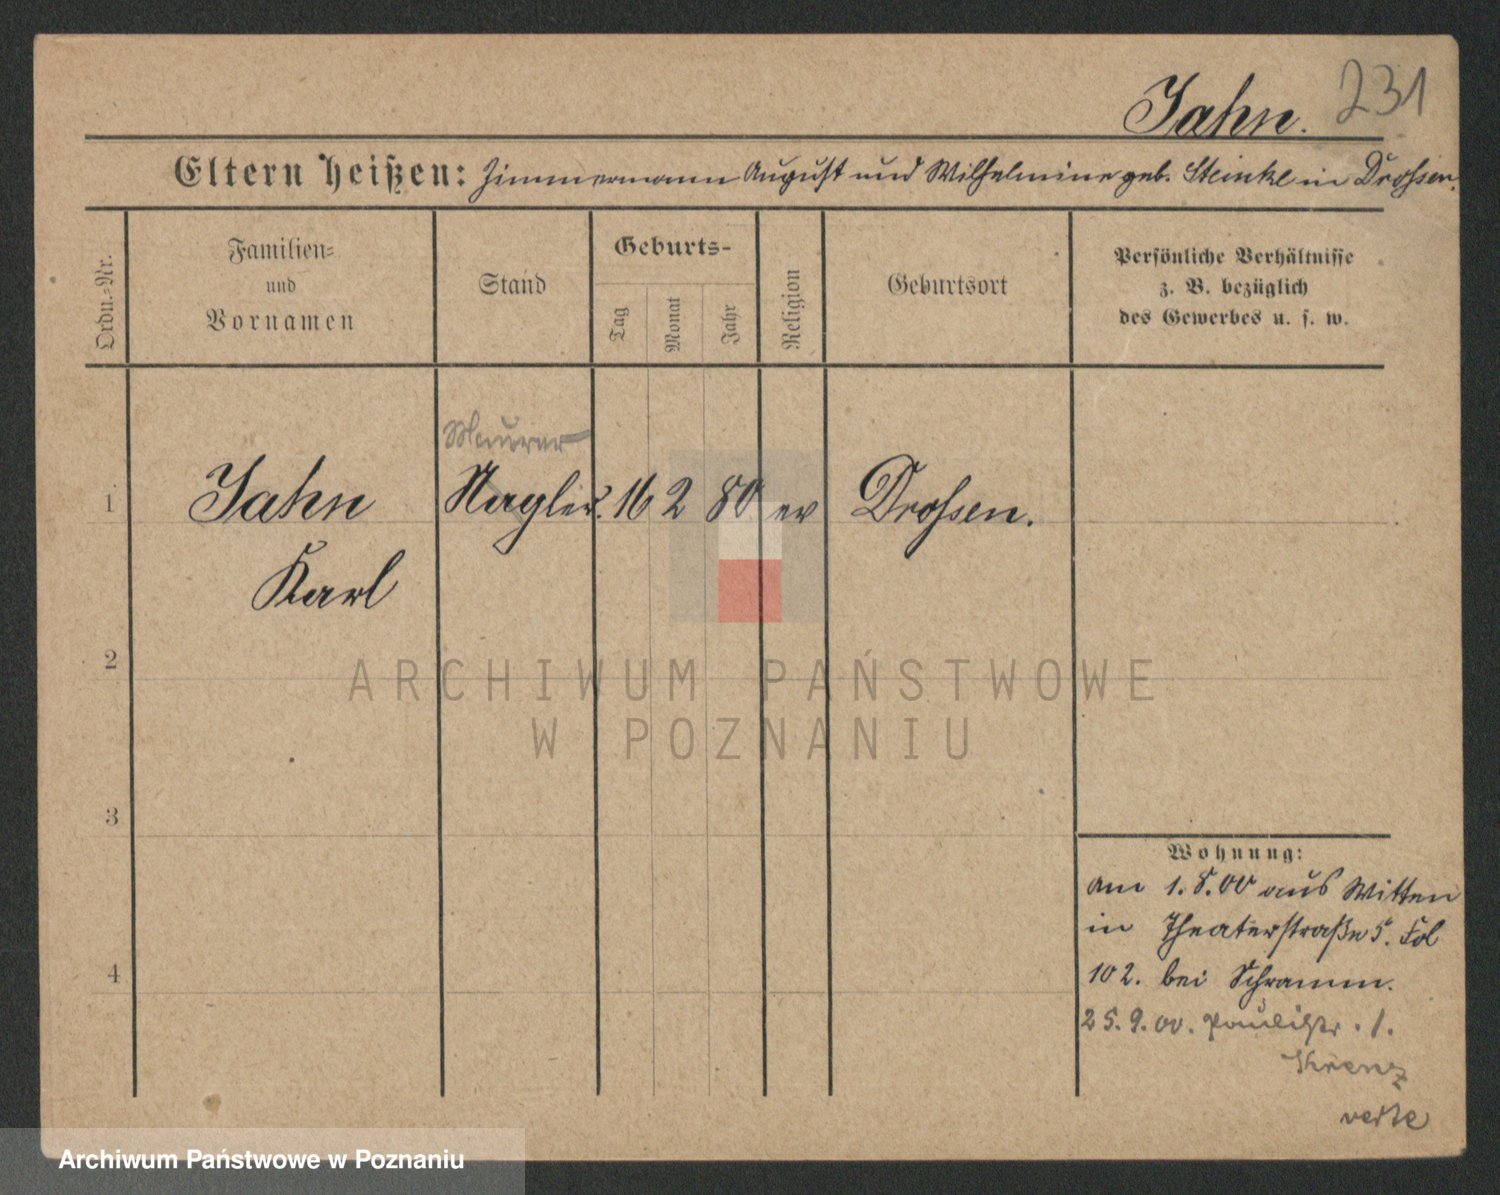 Jahn. 231
Eltern heißen: Zimmermann August und Wilhelmine geb. Steinke in Drossen.
Ordn.-Nr.
Familien-
und
Vornamen
Stand
Geburts-
Tag
Monat
Jahr
Religion
Geburtsort
Persönliche Verhältnisse
z. B. bezüglich
des Gewerbes u. s. w.
Maurer
1 Jahn 16 2 80 ev Drossen.
Karl
2
ARCHIWUM PAŃSTWOWE
W POZNANIU
3
Wohnung:
am 1.8.00 aus Witten
in Theaterstraße 5. Fol
4
102. bei Schramm.
25.9.00. Paulistr. 1.
Krenz
verte
Archiwum Państwowe w Poznaniu